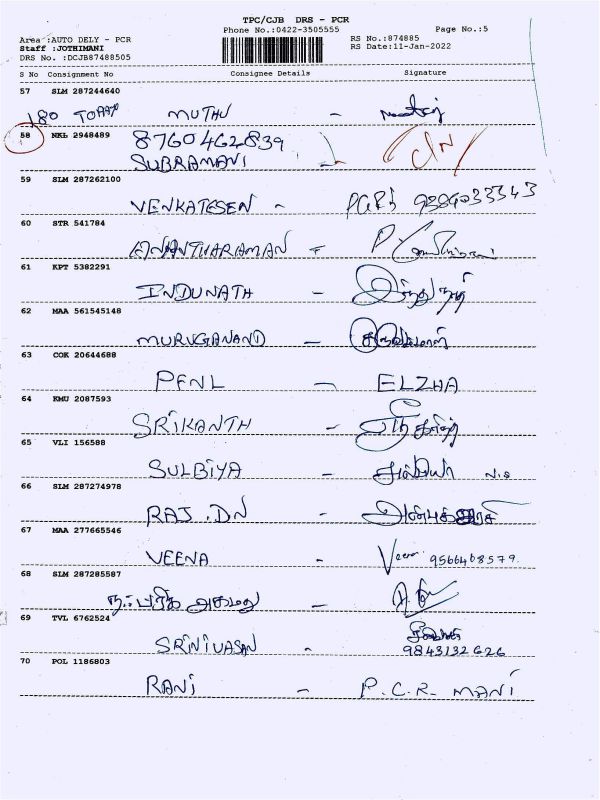 TPC/CJB DRS - PCR
Phone No.:0422-3505555 Page No.:5
Area :AUTO DELY - PCR RS No.:874885
Staff :JOTHIMANI RS Date:11-Jan-2022
DRS No. :DCJB87488505
S No Consignment No Consignee Details Signature
57 SLM 287244640
180 TODAY MUTHU -
58 NKL 2948489 8760462839
SUBRAMANI C/N
59 SLM 287262100
VENKATESEN -
60 STR 541784
ANANTHARAMAN -
61 KPT 5382291
INDUNATH - இந்துநாத்
62 MAA 561545148
MURUGANAND -
63 COK 20644688
PENL - ELZHA
64 KMU 2087593
SRIKANTH - ஸ்ரீகாந்த்
65 VLI 156588
SULBIYA - சுல்பியா
66 SLM 287274978
RAJ.DN -
67 MAA 277665546
VEENA - Veena 9566408579
68 SLM 287285587
அகமது -
69 TVL 6762524
SRINIVASAN - 9843132626
70 POL 1186803
RANI - P.C.R. MANI